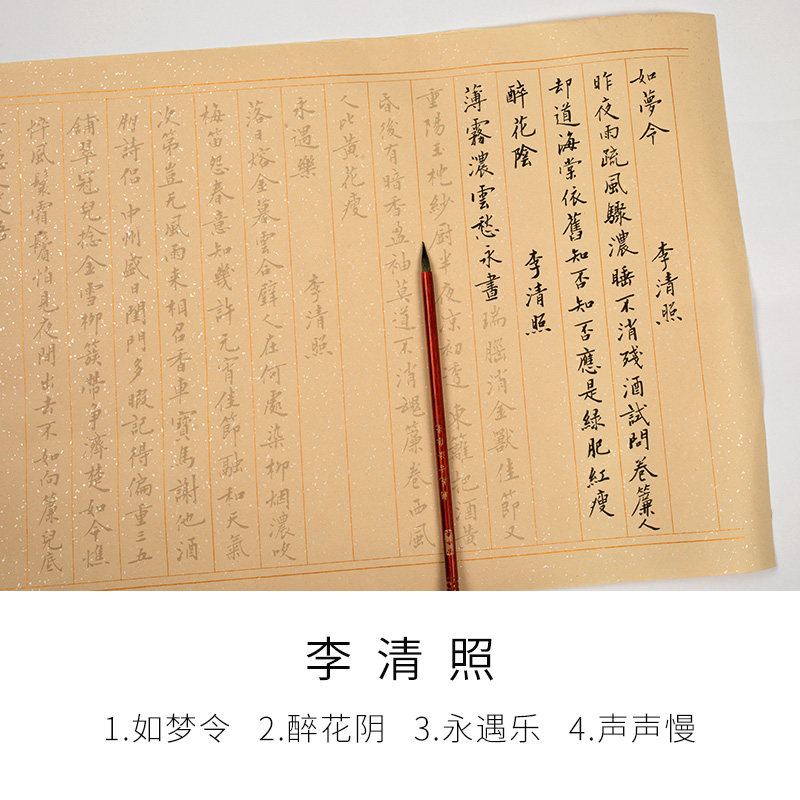 如夢令
李清照
昨夜雨疏風驟濃睡不消殘酒試問卷簾人
却道海棠依舊知否知否應是綠肥紅瘦
醉花陰
李清照
薄霧濃雲愁永晝瑞腦消金獸佳節又
重陽玉枕紗厨半夜涼初透東籬把酒黄
昏後有暗香盈袖莫道不消魂簾卷西風
人比黄花瘦
永遇樂
李清照
落日熔金暮雲合璧人在何處染柳烟濃吹
梅笛怨春意知幾許元宵佳節融和天氣
次第豈无風雨来相召香車寶馬謝他酒
朋詩侣中州盛日閨門多暇記得偏重三五
鋪翠冠兒捻金雪柳簇帶争濟楚如今憔
悴風鬟霜鬢怕見夜間出去不如向簾兒底
李清照
1.如梦令 2.醉花阴 3.永遇乐 4.声声慢